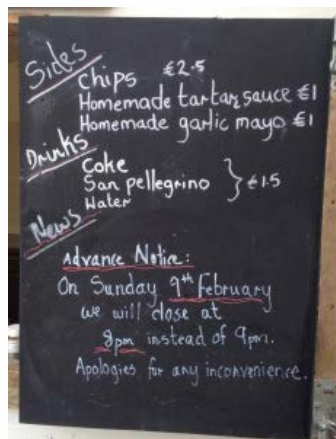 Sides
Chips €2.5
Homemade tartar sauce €1
Homemade garlic mayo €1
Drinks
Coke
San pellegrino } €1.5
Water
News
Advance Notice:
On Sunday 9th February
we will close at
8pm instead of 9pm.
Apologies for any inconvenience.